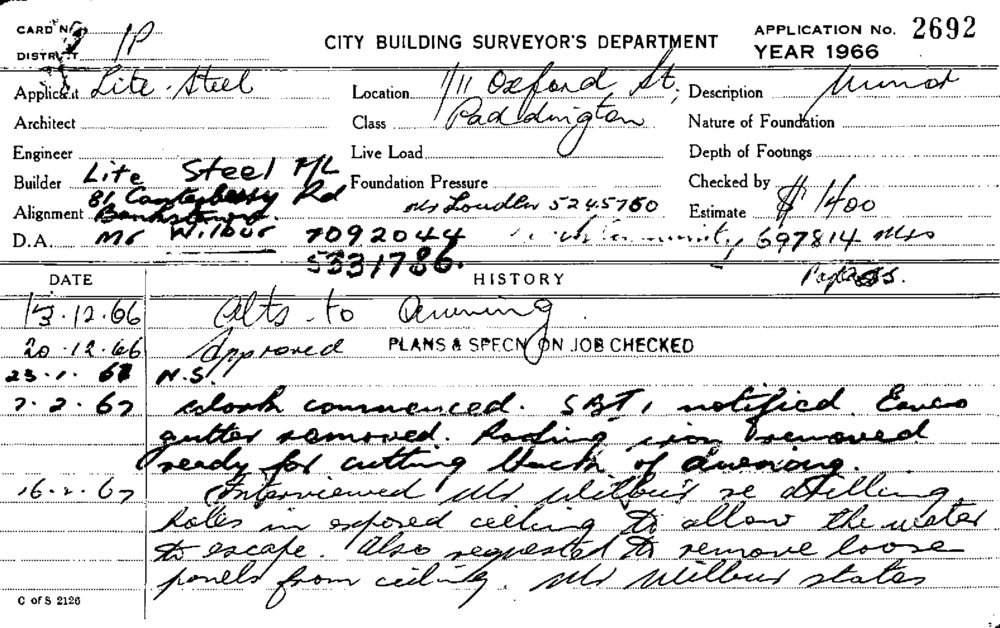 CARD No.
DISTRICT 1P
CITY BUILDING SURVEYOR'S DEPARTMENT
APPLICATION No. 2692
YEAR 1966
Applicant Lite Steel
Location 1/11 Oxford St,
Description Minor
Architect
Class Paddington
Nature of Foundation
Engineer
Live Load
Depth of Footings
Builder Lite Steel P/L
Foundation Pressure
Checked by
81 Canterbury Rd
Alignment Bankstown.
Mr Loudler 5245760
Estimate $1400
D.A. Mr Wilbur 7092044
697814 Mrs
5331786.
DATE
HISTORY
13.12.66 Alts to Awning.
20.12.66 Approved PLANS & SPECN ON JOB CHECKED
23.1.67 N.S.
7.2.67 Work commenced. SBI, notified. Eaves
gutter removed. Roofing iron removed
ready for cutting back of awning.
16.2.67 Interviewed Mr Wilbur re drilling
holes in exposed ceiling to allow the water
to escape. Also requested to remove loose
panels from ceiling. Mr Wilbur states
C of S 2126